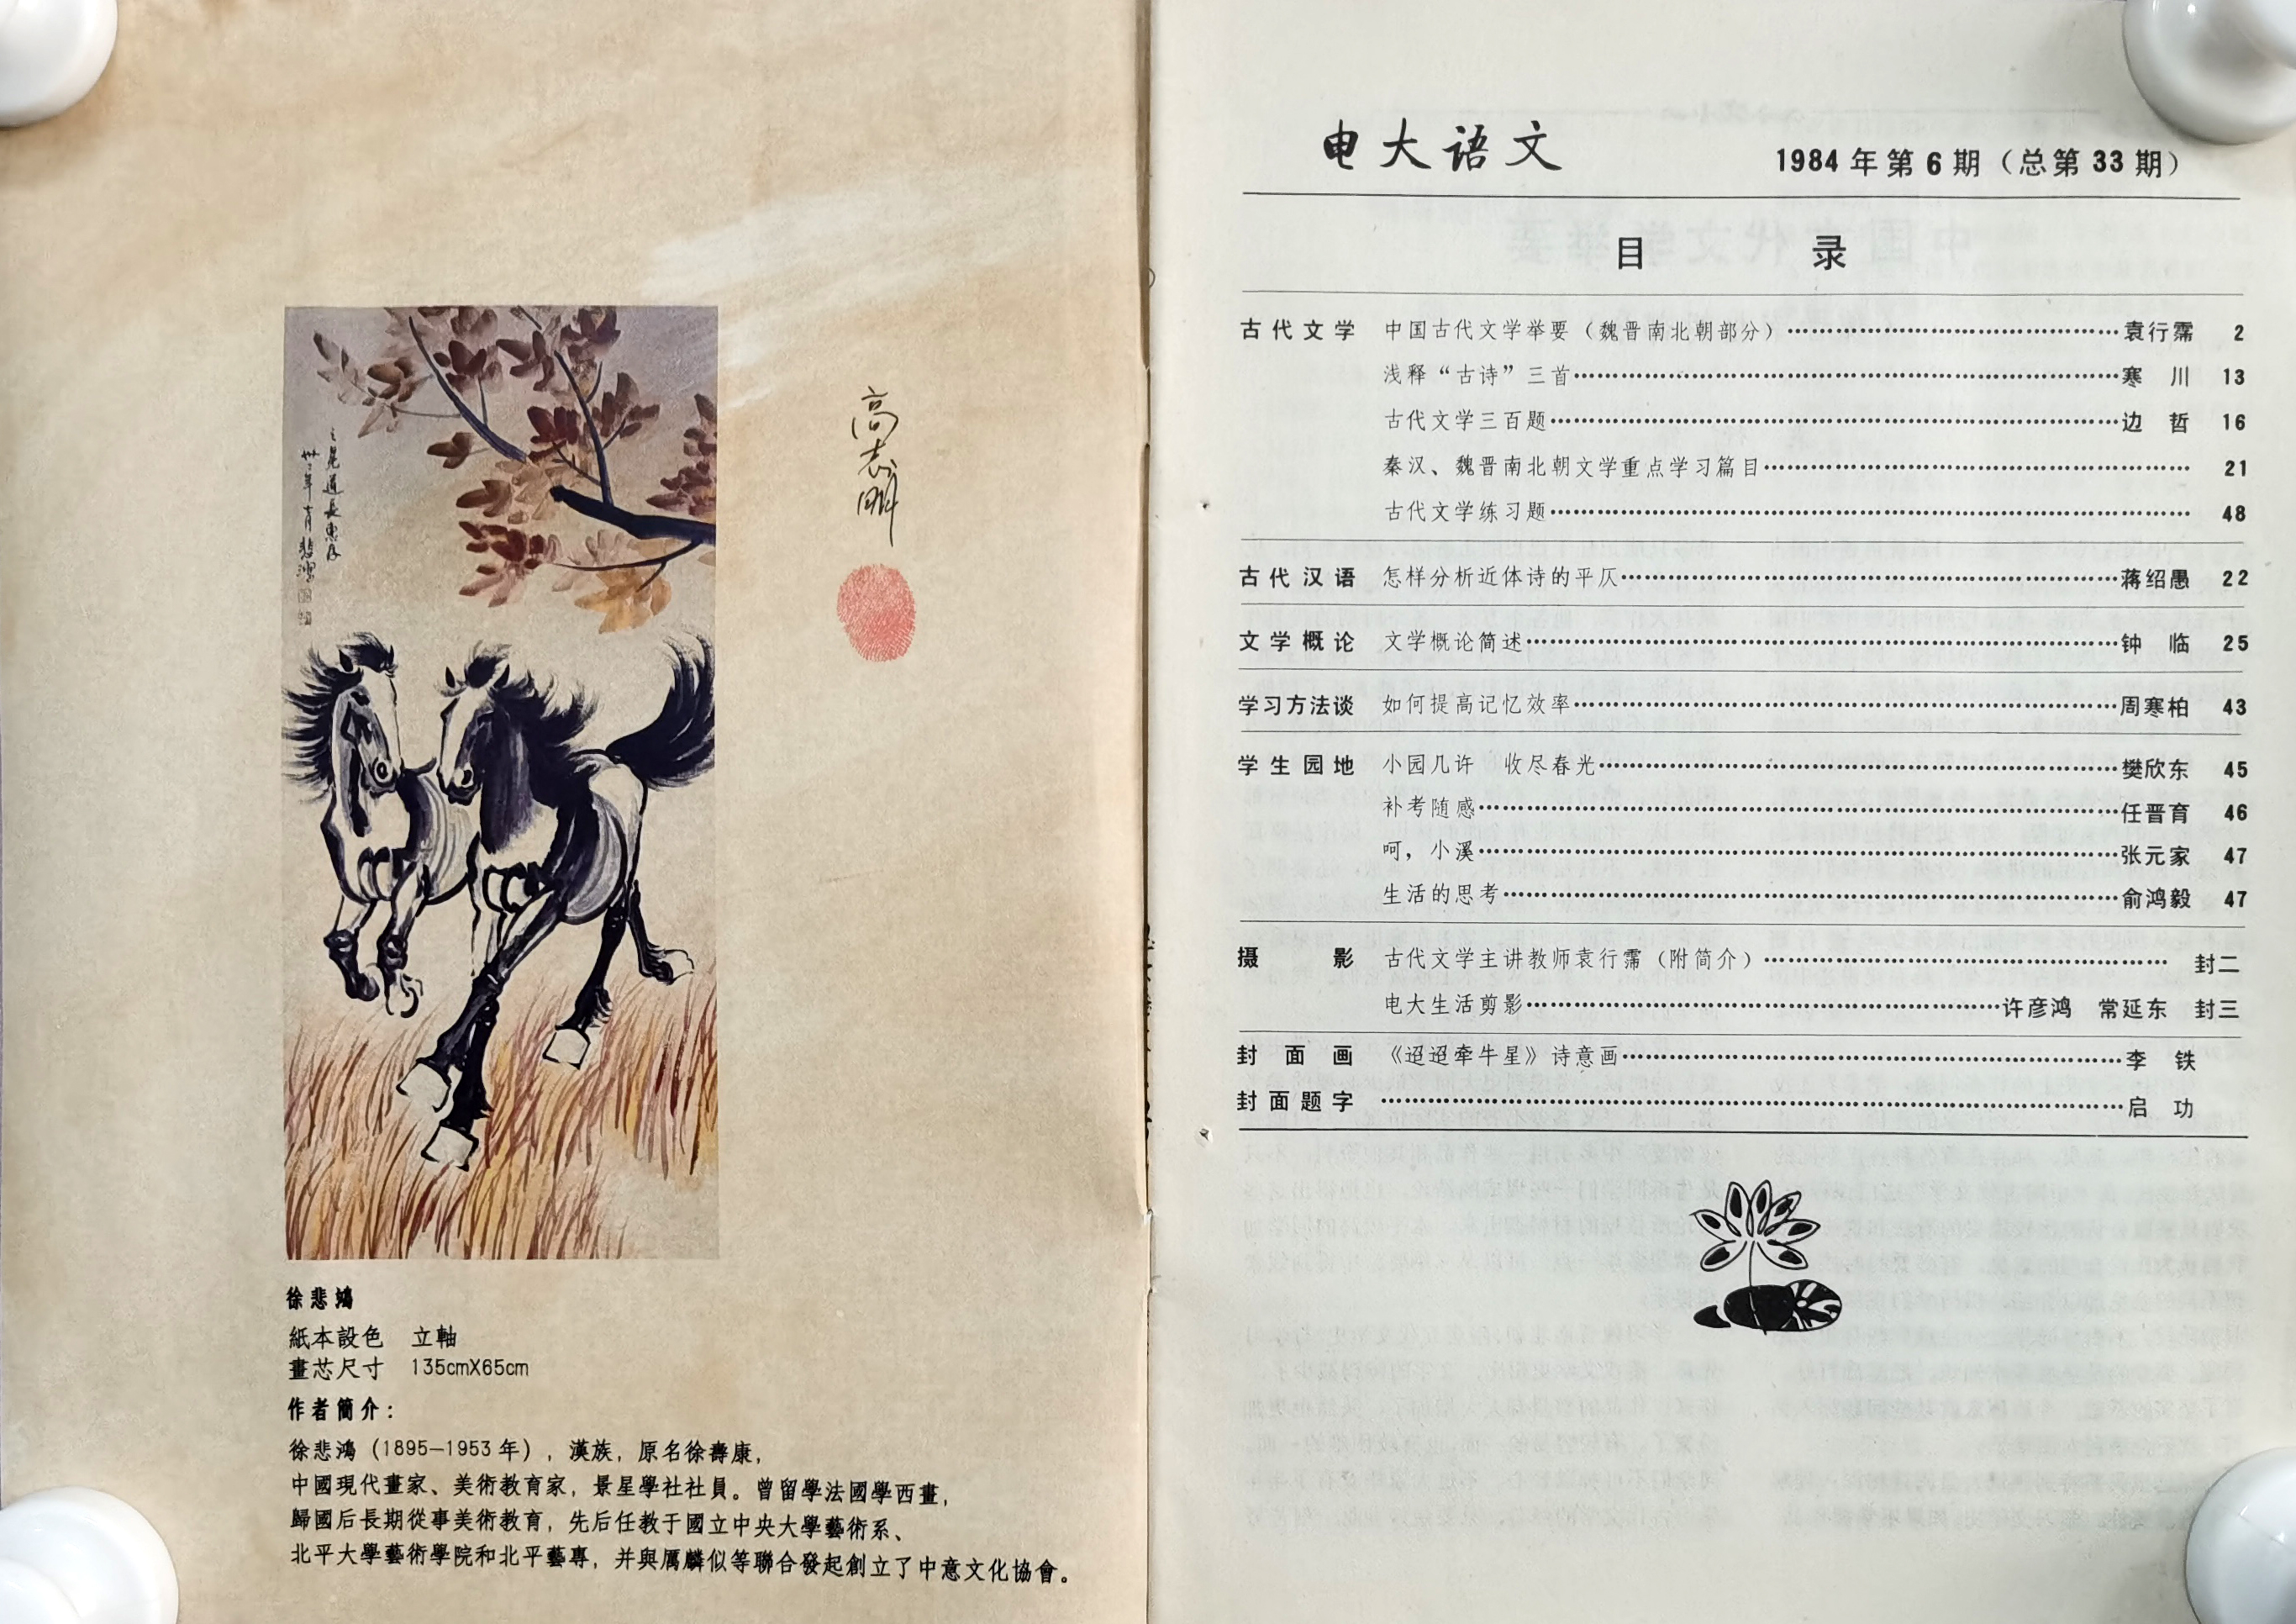 高志明
之光道長惠存
卅二年 悲鴻
徐悲鴻
紙本設色 立軸
畫芯尺寸 135cmX65cm
作者簡介：
徐悲鴻（1895—1953年），漢族，原名徐壽康，
中國現代畫家、美術教育家，景星學社社員。曾留學法國學西畫，
歸國后長期從事美術教育，先后任教于國立中央大學藝術系、
北平大學藝術學院和北平藝專，并與厲麟似等聯合發起創立了中意文化協會。
电大语文 1984年第6期（总第33期）
目录
古代文学 中国古代文学举要（魏晋南北朝部分）……袁行霈 2
浅释“古诗”三首……寒川 13
古代文学三百题……边哲 16
秦汉、魏晋南北朝文学重点学习篇目…… 21
古代文学练习题…… 48
古代汉语 怎样分析近体诗的平仄……蒋绍愚 22
文学概论 文学概论简述……钟临 25
学习方法谈 如何提高记忆效率……周寒柏 43
学生园地 小园几许 收尽春光……樊欣东 45
补考随感……任晋育 46
呵，小溪……张元家 47
生活的思考……俞鸿毅 47
摄影 古代文学主讲教师袁行霈（附简介）…… 封二
电大生活剪影……许彦鸿 常延东 封三
封面画 《迢迢牵牛星》诗意画……李铁
封面题字 ……启功